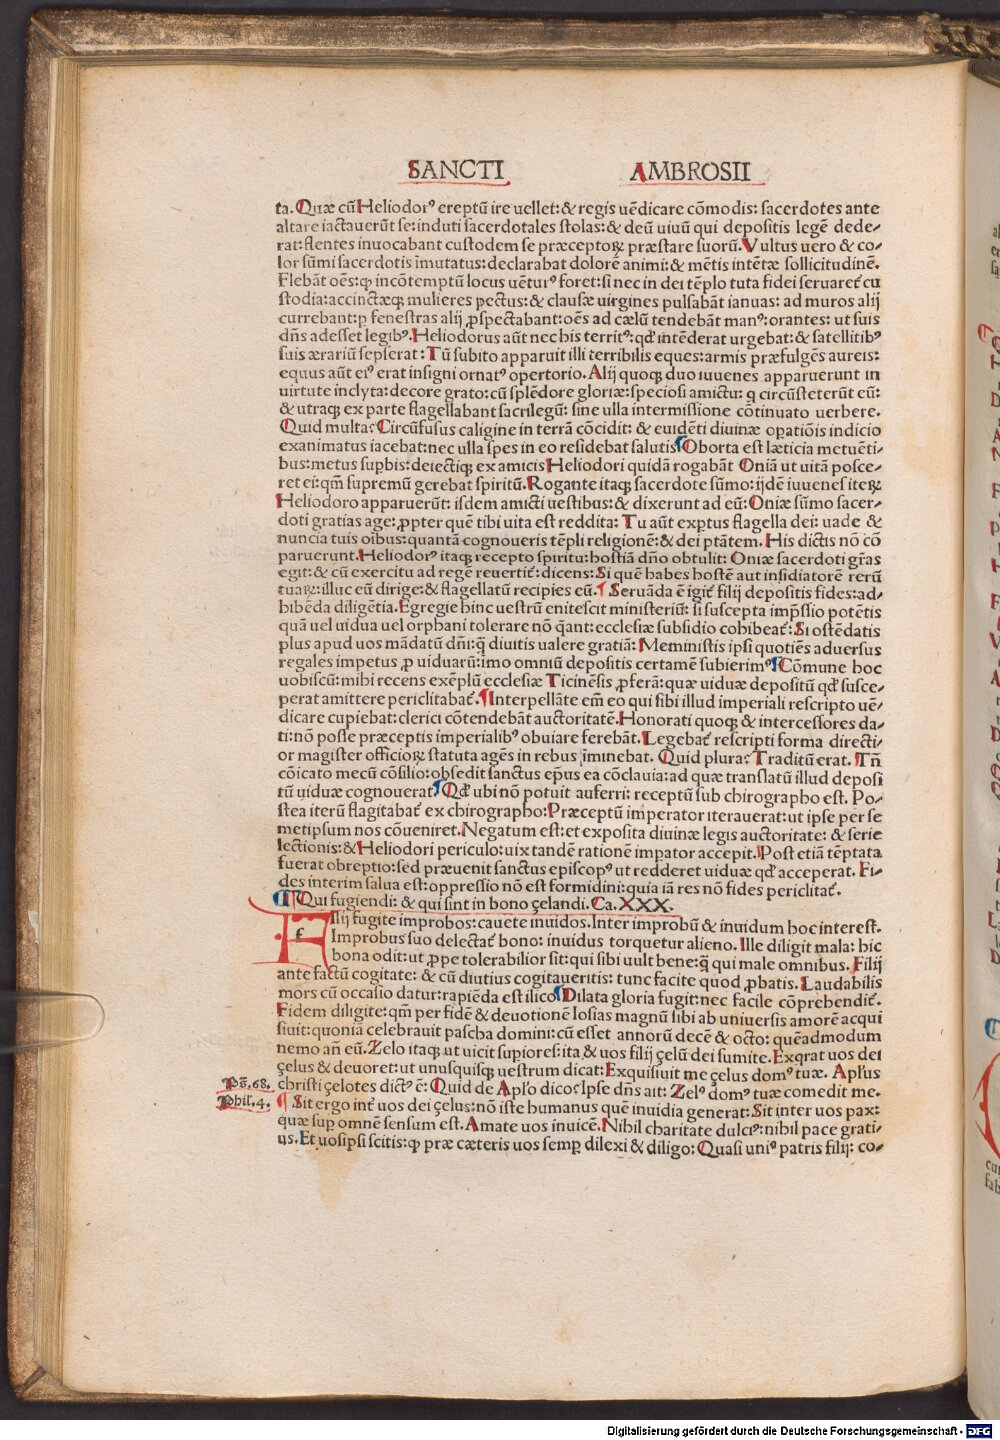 SANCTI AMBROSII
ta. Quæ cū Heliodorꝰ ereptū ire uellet: & regis uēdicare cōmodis: sacerdotes ante
altare iactauerūt se: induti sacerdotales stolas: & deū uiuū qui depositis legē dede⸗
rat: flentes inuocabant custodem se præceptoꝝ præstare suorū. Vultus uero & co⸗
lor sūmi sacerdotis īmutatus: declarabat dolorē animi: & mētis intētæ sollicitudinē.
Flebāt oēs: ꝙ incōtemptū locus uēturꝰ foret: si nec in dei tēplo tuta fidei seruaret̄ cu
stodia: accinctæqꝫ mulieres pectus: & clausæ uirgines pulsabāt ianuas: ad muros alij
currebant: ꝑ fenestras alij ꝓspectabant: oēs ad cælū tendebāt manꝰ: orantes: ut suis
dn̄s adesset legibꝰ. Heliodorus aūt nec his territꝰ: qd̓ intēderat urgebat: & satellitibꝰ
suis ærariū sepserat: Tū subito apparuit illi terribilis eques: armis præfulgēs aureis:
equus aūt eiꝰ erat insigni ornatꝰ opertorio. Alij quoqꝫ duo iuuenes apparuerunt in
uirtute inclyta: decore grato: cū splēdore gloriæ: speciosi amictu: q̇ circūsteterūt eū:
& utraqꝫ ex parte flagellabant sacrilegū: sine ulla intermissione cōtinuato uerbere.
Quid multa? Circūfusus caligine in terrā cōcidit: & euidēti diuinæ oꝑatiōis indicio
exanimatus iacebat: nec ulla spes in eo residebat salutis ¶ Oborta est læticia metuēti⸗
bus: metus suꝑbis: deiectiqꝫ ex amicis Heliodori quidā rogabāt Oniā ut uitā posce⸗
ret ei: qm̄ supremū gerebat spiritū. Rogante itaqꝫ sacerdote sūmo: ijdē iuuenes iteꝝ
Heliodoro apparuerūt: isdem amicti uestibus: & dixerunt ad eū: Oniæ sūmo sacer⸗
doti gratias age: ꝓpter quē tibi uita est reddita: Tu aūt exꝑtus flagella dei: uade &
nuncia tuis oībus: quantā cognoueris tēpli religionē: & dei ptātem. His dictis nō cō
paruerunt. Heliodorꝰ itaqꝫ recepto spiritu: hostiā dn̄o obtulit: Oniæ sacerdoti gr̄as
egit: & cū exercitu ad regē reuertit̄: dicens: Si quē habes hostē aut insidiatorē rerū
tuaꝝ: illuc eū dirige: & flagellatū recipies eū. ¶ Seruāda ē igit̄ filij depositis fides: ad⸗
hibēda diligētia. Egregie hinc uestrū enitescit ministeriū: si suscepta imp̄ssio potētis
quā uel uidua uel orphani tolerare nō q̄ant: ecclesiæ subsidio cohibeat̄: Si ostēdatis
plus apud uos mādatū dn̄i: q̄ diuitis ualere gratiā: Meministis ipsi quotiēs aduersus
regales impetus ꝓ uiduarū: imo omniū depositis certamē subierimꝰ ¶ Cōmune hoc
uobiscū: mihi recens exēplū ecclesiæ Ticinēsis ꝓferā: quæ uiduæ depositū qd̓ susce⸗
perat amittere periclitabat̄. ¶ Interpellāte em̄ eo qui sibi illud imperiali rescripto uē⸗
dicare cupiebat: clerici cōtendebāt auctoritatē. Honorati quoqꝫ & intercessores da⸗
ti: nō posse præceptis imperialibꝰ obuiare ferebāt. Legebat̄ rescripti forma directi⸗
or magister officioꝝ statuta agēs in rebus īminebat. Quid plura? Traditū erat. ¶ Tn̄
cōicato mecū cōsilio: obsedit sanctus ep̄us ea cōclauia: ad quæ translatū illud deposi
tū uiduæ cognouerat ¶ Qd̓ ubi nō potuit auferri: receptū sub chirographo est. Po⸗
stea iterū flagitabat̄ ex chirographo: Præceptū imperator iterauerat: ut ipse per se
metipsum nos cōueniret. Negatum est: et exposita diuinæ legis auctoritate: & serie
lectionis: & Heliodori periculo: uix tandē rationē imꝑator accepit. Post etiā tēptata
fuerat obreptio: sed præuenit sanctus episcopꝰ ut redderet uiduæ qd̓ acceperat. Fi⸗
des interim salua est: oppressio nō est formidini: quia iā res nō fides periclitat̄.
¶ Qui fugiendi: & qui sint in bono çelandi. Ca. XXX.
Filij fugite improbos: cauete inuidos. Inter improbū & inuidum hoc interest.
Improbus suo delectat̄ bono: inuidus torquetur alieno. Ille diligit mala: hic
bona odit: ut ꝓpe tolerabilior sit: qui sibi uult bene: q̄ qui male omnibus. Filij
ante factū cogitate: & cū diutius cogitaueritis: tunc facite quod ꝓbatis. Laudabilis
mors cū occasio datur: rapiēda est ilico ¶ Dilata gloria fugit: nec facile cōprehendit̄.
Fidem diligite: qm̄ per fidē & deuotionē Iosias magnū sibi ab uniuersis amorē acqui
siuit: quoniā celebrauit pascha domini: cū esset annorū decē & octo: quēadmodum
nemo an̄ eū. Zelo itaqꝫ ut uicit suꝑiores: ita & uos filij çelū dei sumite. Exq̇rat uos dei
çelus & deuoret: ut unusquisqꝫ uestrum dicat: Exquisiuit me çelus domꝰ tuæ. Apl̓us
Ps̄. 68. christi çelotes dictꝰ ē: Quid de Apl̓o dico? Ipse dn̄s ait: Zelꝰ domꝰ tuæ comedit me.
Phil. 4. ¶ Sit ergo int̄ uos dei çelus: nō iste humanus quē inuidia generat: Sit inter uos pax:
quæ suꝑ omnē sensum est. Amate uos inuicē. Nihil charitate dulciꝰ: nihil pace grati⸗
us. Et uosipsi scitis: ꝙ præ cæteris uos semꝑ dilexi & diligo: Quasi uniꝰ patris filij: co⸗
Digitalisierung gefördert durch die Deutsche Forschungsgemeinschaft - DFG